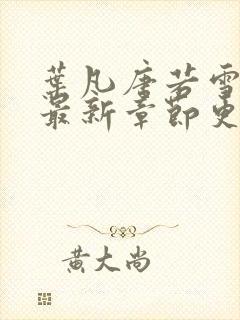 葉凡唐若雪
最新章節更
黃大尚